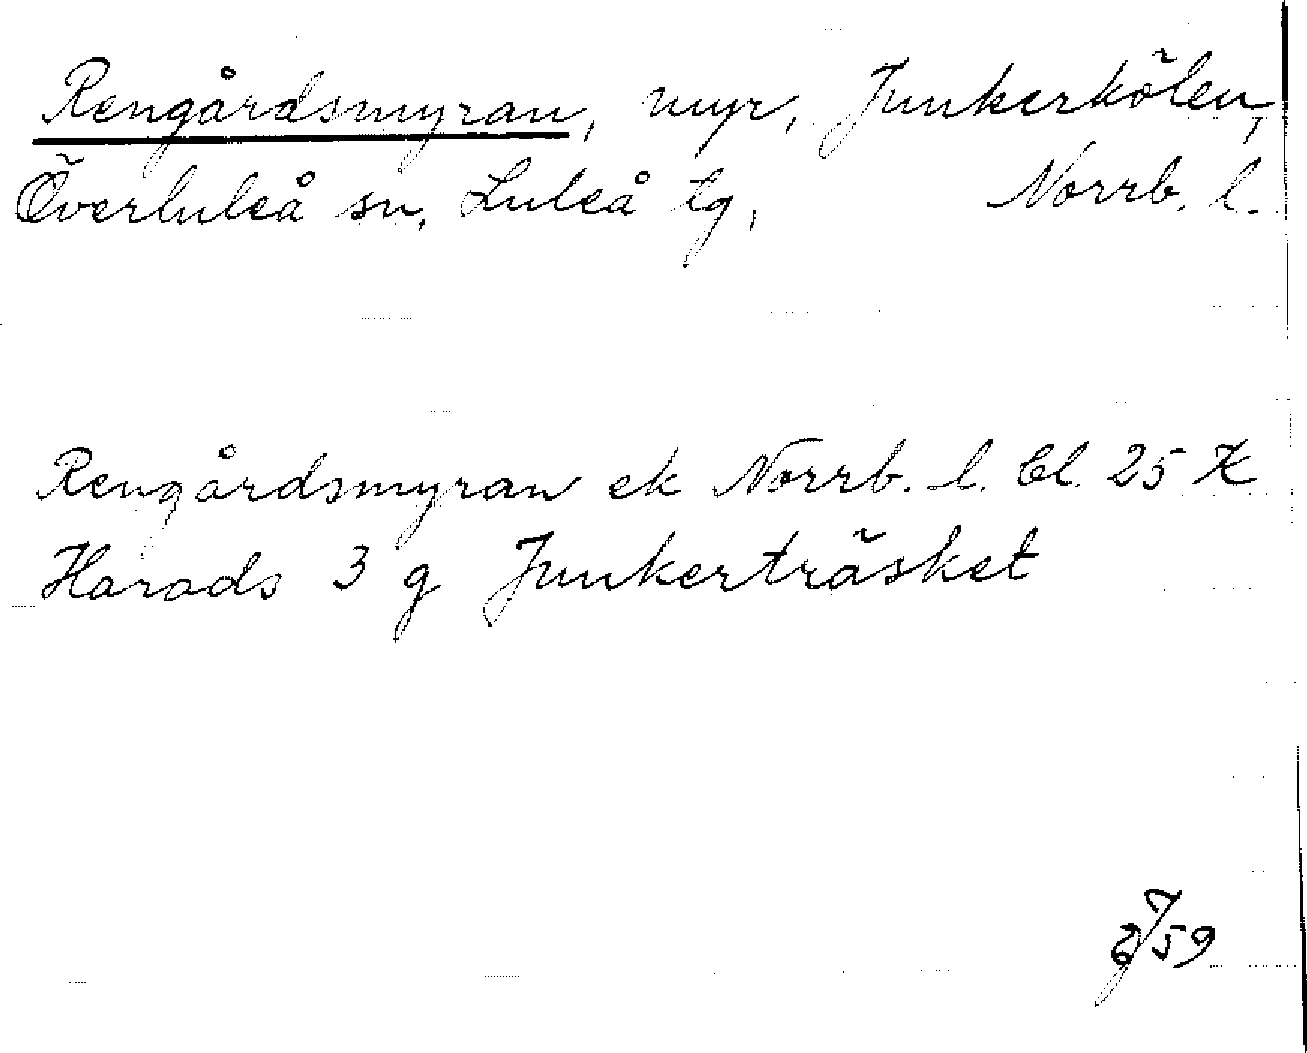 Rengårdsmyran, myr, Junkerkölen,
Överluleå sn, Luleå tg, Norrb. l.
Rengårdsmyran ek Norrb. l. bl. 25 K
Harads 3 g Junkerträsket
59